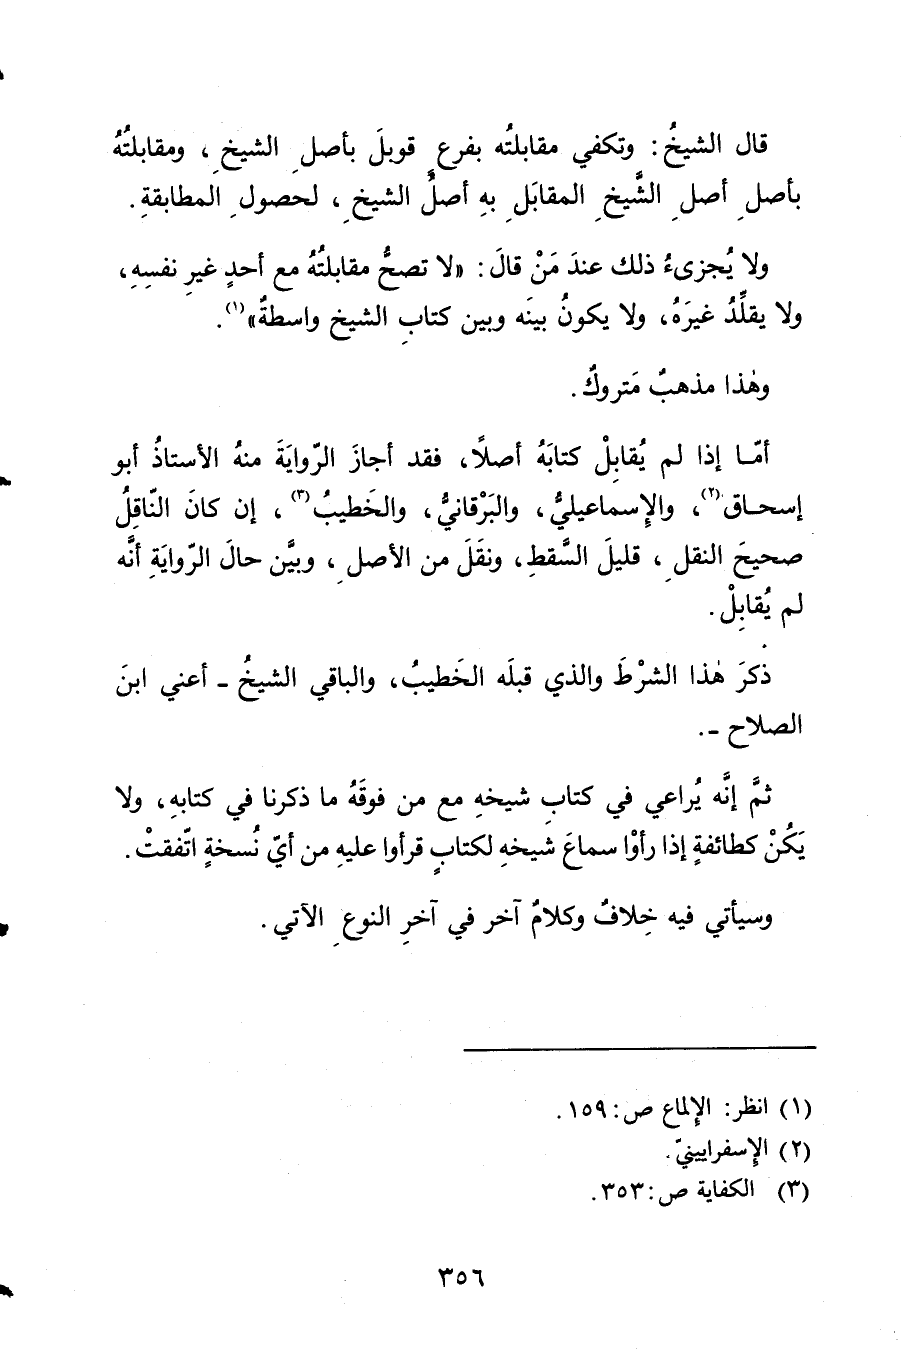 قال الشيخُ: وتكفي مقابلتُه بفرعٍ قوبلَ بأصلِ الشيخِ، ومقابلتُهُ
بأصلِ أصلِ الشَّيخِ المقابَلِ بهِ أصلُ الشيخِ، لحصولِ المطابقةِ.
ولا يُجزىءُ ذلك عندَ مَنْ قالَ: «لا تصحُّ مقابلتُهُ مع أحدٍ غيرِ نفسِهِ،
ولا يقلِّدُ غيرَهُ، ولا يكونُ بينَه وبين كتابِ الشيخ واسطةٌ»(١).
وهٰذا مذهبٌ مَتروكٌ.
أمّا إذا لم يُقابِلْ كتابَهُ أصلًا، فقد أجازَ الرّوايَةَ منهُ الأستاذُ أبو
إسحاق(٢)، والإسماعيليُّ، والبَرْقانيُّ، والخَطيبُ(٣)، إن كانَ النّاقِلُ
صحيحَ النقلِ، قليلَ السَّقطِ، ونقَلَ من الأصلِ، وبيَّن حالَ الرّوايَةِ أنَّه
لم يُقابِلْ.
ذكرَ هٰذا الشرْطَ والذي قبلَه الخَطيبُ، والباقي الشيخُ - أعني ابنَ
الصلاح -.
ثمَّ إنَّه يُراعي في كتابِ شيخهِ مع من فوقَهُ ما ذكرنا في كتابهِ، ولا
يَكُنْ كطائفةٍ إذا رأوْا سماعَ شيخهِ لكتابٍ قرأوا عليهِ من أيّ نُسخةٍ اتّفقتْ.
وسيأتي فيه خِلافٌ وكلامٌ آخر في آخرِ النوعِ الآتي.
(١) انظر: الإلماع ص: ١٥٩.
(٢) الإسفرايينيّ.
(٣) الكفاية ص: ٣٥٣.
٣٥٦